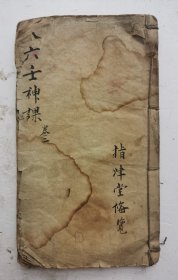 六壬神課
卷二
指迷堂備覽